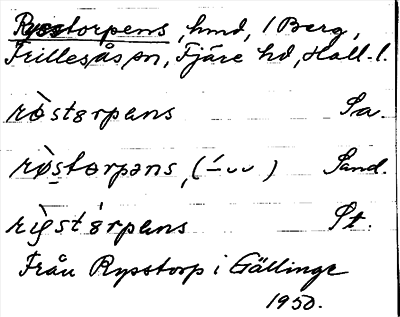 Rysstorpens, hmd, 1 Berg,
Frillesås sn, Fjäre hd, Hall. l.
rò̀st8rpens Sa.
rø̀storpəns, (–́⏑⏑) Sand.
st'8rpens St.
Från Rysstorp i Gällinge
1950.